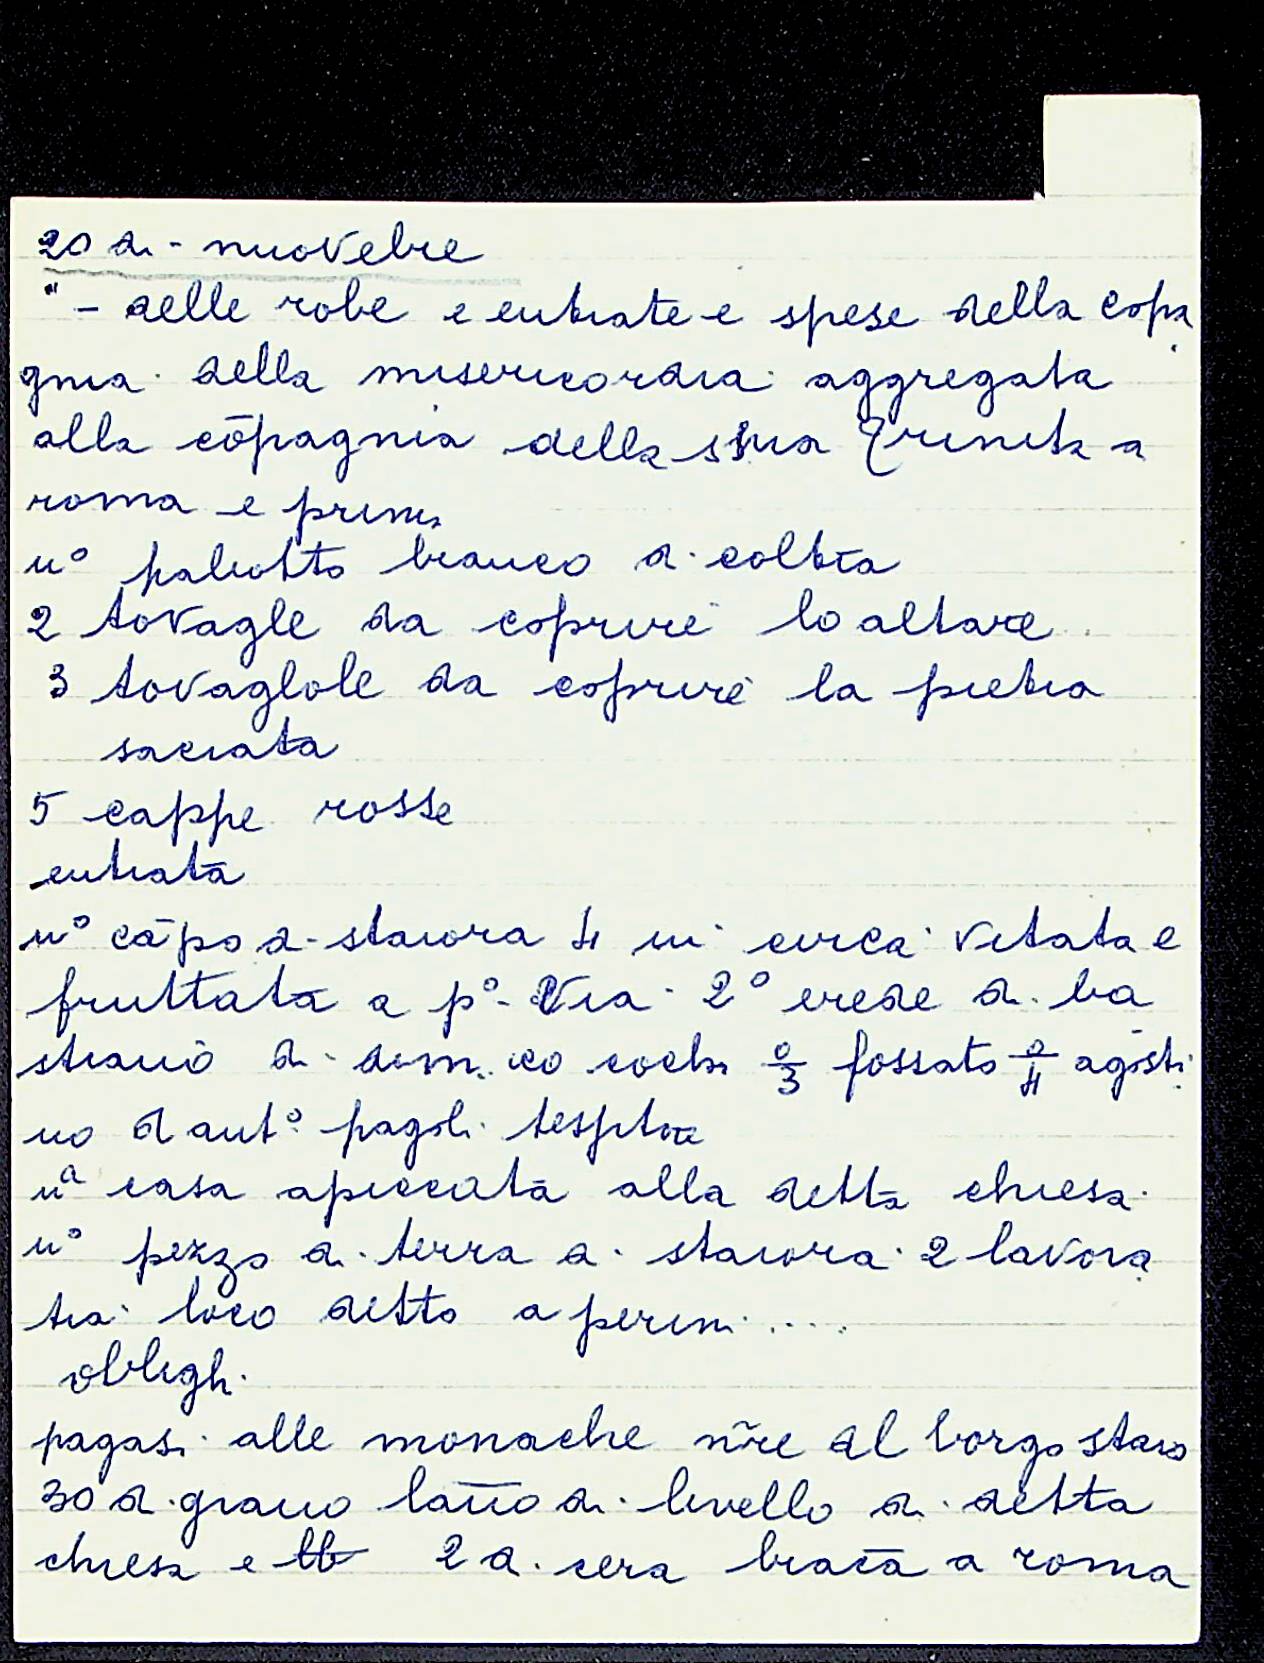 20 di - nuovebre
" - delle robe e entrate e spese della copa
gnia della misericordia aggregata
alla cōpagnia della s̄ma trinita a
roma e prima
uº paliotto bianco di coltra
2 tovagle da coprire lo altare
3 tovagliole da coprire la pietra
sacrata
5 cappe rosse
entrata
uº cāpo di staiora 4 in circa vitata e
fruttata a pº via 2º erede di ba
stiano di dominico cochi a/3 fossato a/4 agosti
no d antº pagoli
uª casa apiccata alla detta chiesa
uº pezzo di terra di staiora 2 lavora
tia loco detto a perini ....
oblighi
pagasi alle monache nr̃e al borgo staio
30 di grano lāno di livello di detta
chiesa e lb 2 di cera biāca a roma